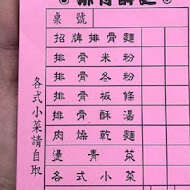 桌號
招牌排骨麵
排骨米粉
排骨冬粉
排骨板條
排骨酥湯
肉燥乾麵
燙青菜
各式小菜
各式小菜請自取